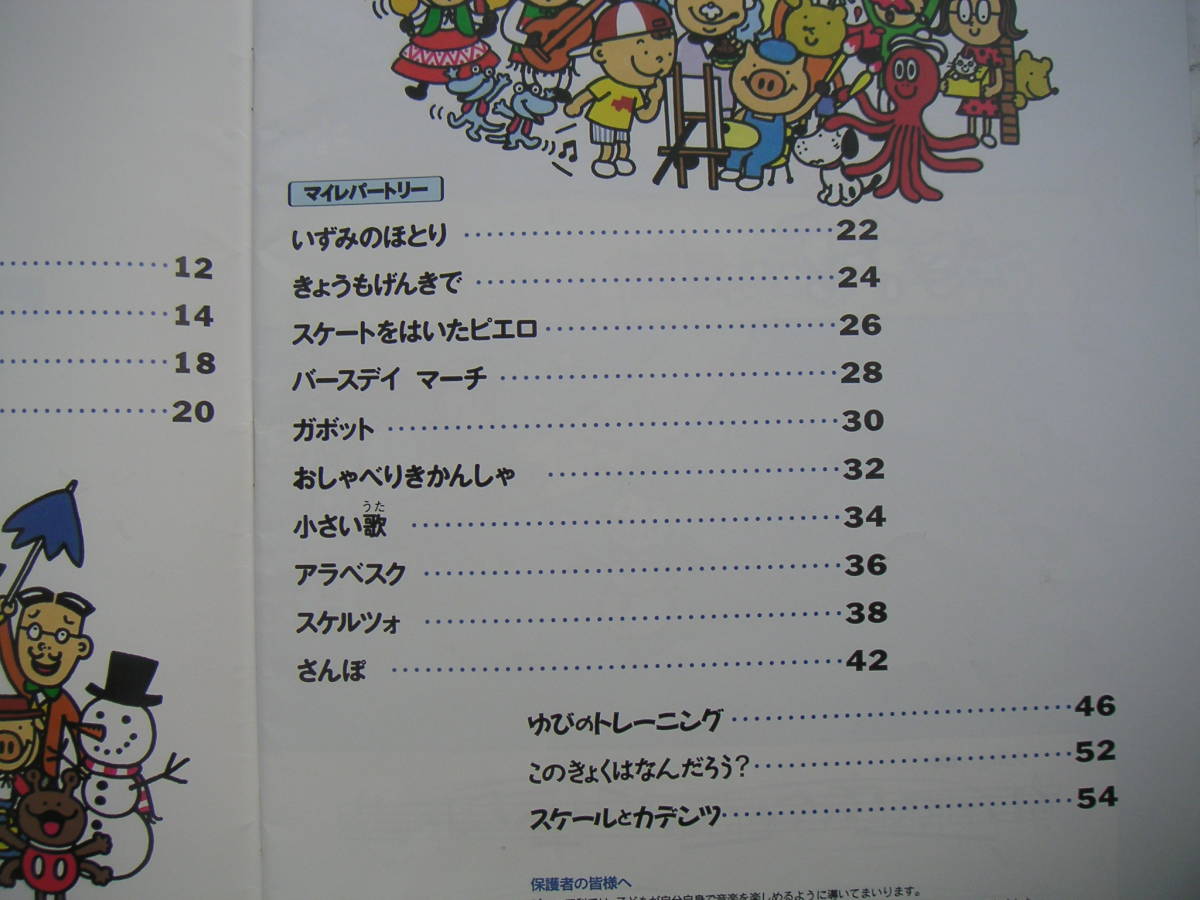 12
14
18
20
マイレパートリー
いずみのほとり 22
きょうもげんきで 24
スケートをはいたピエロ 26
バースデイ マーチ 28
ガボット 30
おしゃべりきかんしゃ 32
小さい歌 34
うた
アラベスク 36
スケルツォ 38
さんぽ 42
ゆびのトレーニング 46
このきょくはなんだろう? 52
スケールとカデンツ 54
保護者の皆様へ
子どもが自分自身で音楽を楽しめるように導いてまいります。